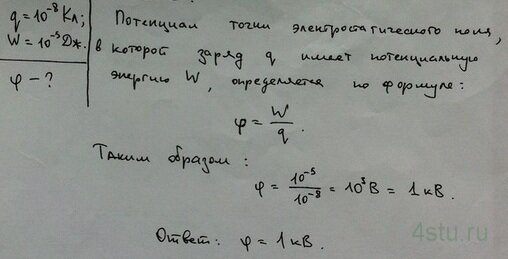 q = 10⁻⁸ Кл;
W = 10⁻⁵ Дж.
φ - ?
Потенциал точки электростатического поля,
в которой заряд q имеет потенциальную
энергию W, определяется по формуле:
φ = W/q.
Таким образом:
φ = 10⁻⁵/10⁻⁸ = 10³ В = 1 кВ.
Ответ: φ = 1 кВ.
4stu.ru